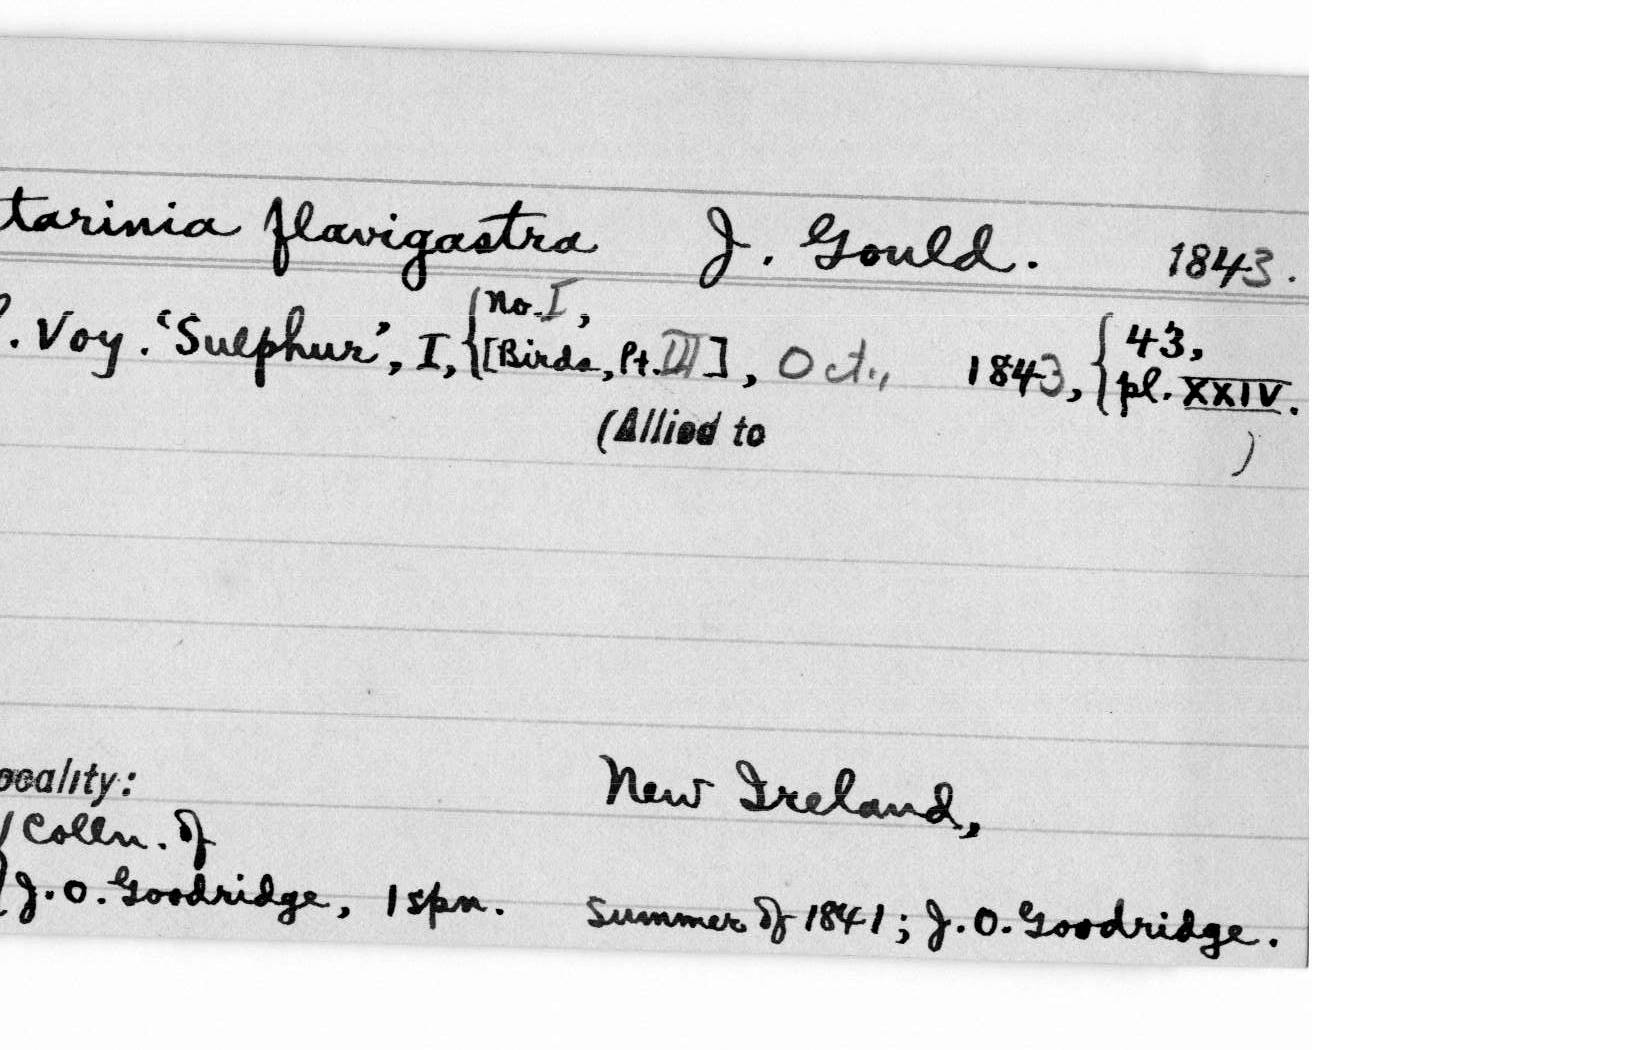 tarinia flavigastra J. Gould. 1843.
. Voy. 'Sulphur', I, { No. I, [Birds, Pt. III], Oct., 1843, { 43, pl. XXIV.
(Allied to )
ocality: New Ireland,
Colln. of
J. O. Goodridge, 1 spn. Summer of 1841; J. O. Goodridge.